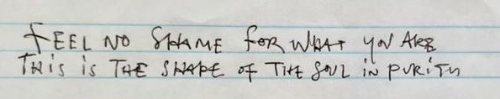 FEEL NO SHAME FOR WHAT YOU ARE
THIS IS THE SHAPE OF THE SOUL IN PURITY